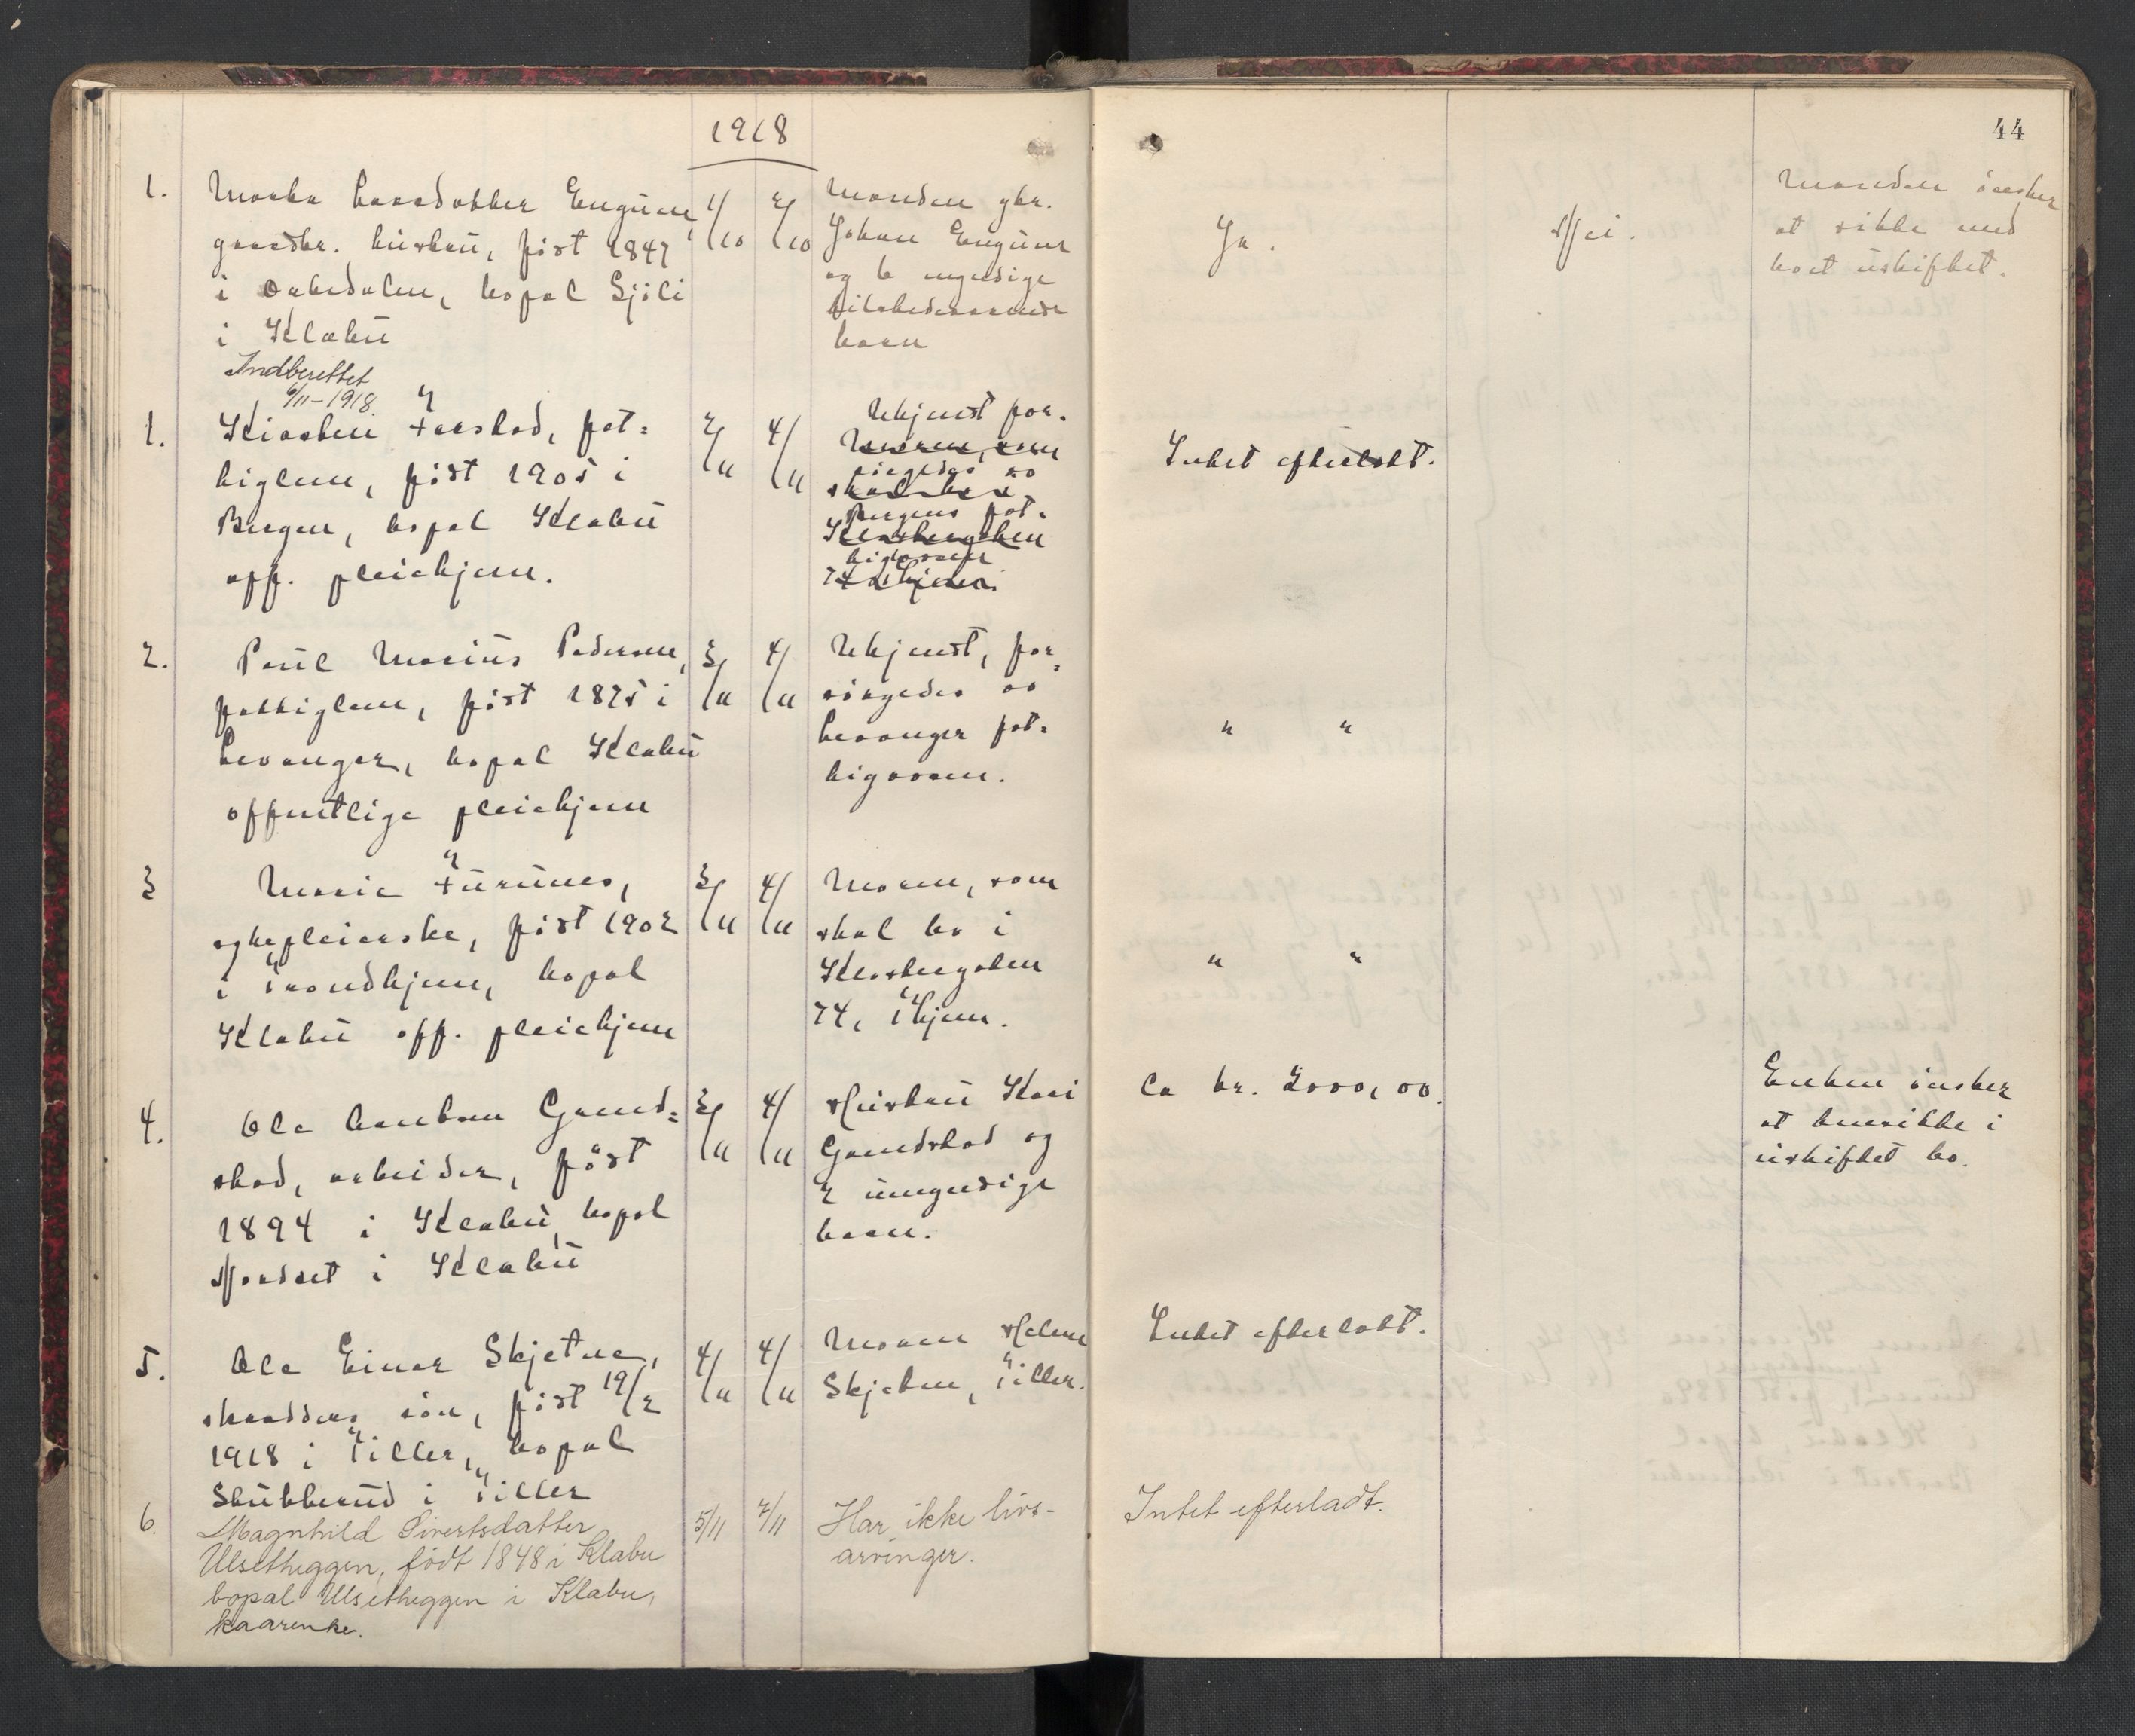 1918
44
1.
Marta Larsdatter Engum,
gaardbr. hustru, födt 1847
i Orkedalen, bopæl Sjöli
i Klæbu
1/10
2/10
Manden gbr.
Johan Engum
og 6 myndige
tilstedeværende
barn
Ja.
Nei.
Manden önsker
at sidde med
boet uskiftet.
Indberettet
6/11-1918.
1.
Kirsten Farstad, fat-
tiglem, födt 1905 i
Bergen, bopæl Klæbu
off. pleiehjem.
2/11
4/11
Ukjendt for-
Moren, som
sörgedes av
skal bo i
Bergens fat-
Klostergaten
tigvæsen
74 Thjem.
Intet efterladt.
2.
Paul Marius Pedersen,
fattiglem, födt 1875 i
Levanger, bopæl Klæbu
offentlige pleiehjem
3/11
4/11
Ukjendt, for-
sörgedes av
Levanger fat-
tigvæsen.
" "
3
Marie Furunes,
sykepleierske, födt 1902
i Trondhjem, bopæl
Klæbu off. pleiehjem
3/11
4/11
Moren, som
skal bo i
Klostergaten
74, Thjem.
" "
4.
Ole Arntsen Grend-
stad, arbeider, födt
1894 i Klæbu, bopæl
Nordset i Klæbu
3/11
4/11
Hustru Kari
Grendstad og
2 umyndige
barn.
Ca kr. 2000,00.
Enken önsker
at hensidde i
uskiftet bo.
5.
Ole Einar Skjetne,
skrædders sön, födt 19/2
1918 i Tiller, bopæl
Stubberud i Tiller
4/11
4/11
Moren Helene
Skjetne, Tiller.
Intet efterladt.
6.
Magnhild Sivertsdatter
Ulsetheggen, født 1848 i Klæbu
bopæl Ulsetheggen i Klæbu,
kaarenke.
5/11
7/11
Har ikke livs-
arvinger.
Intet efterladt.